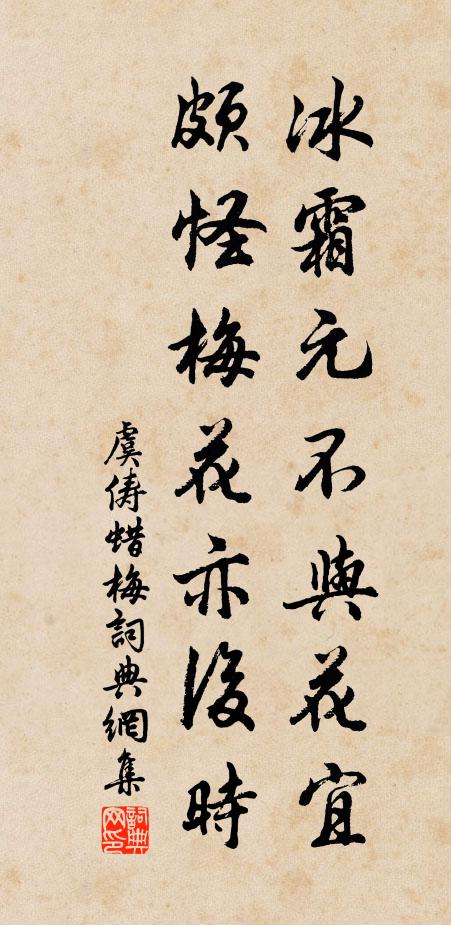 冰霜元不與花宜
頗怪梅花亦後時
虞儔蜡梅詞典網集
詞典网印